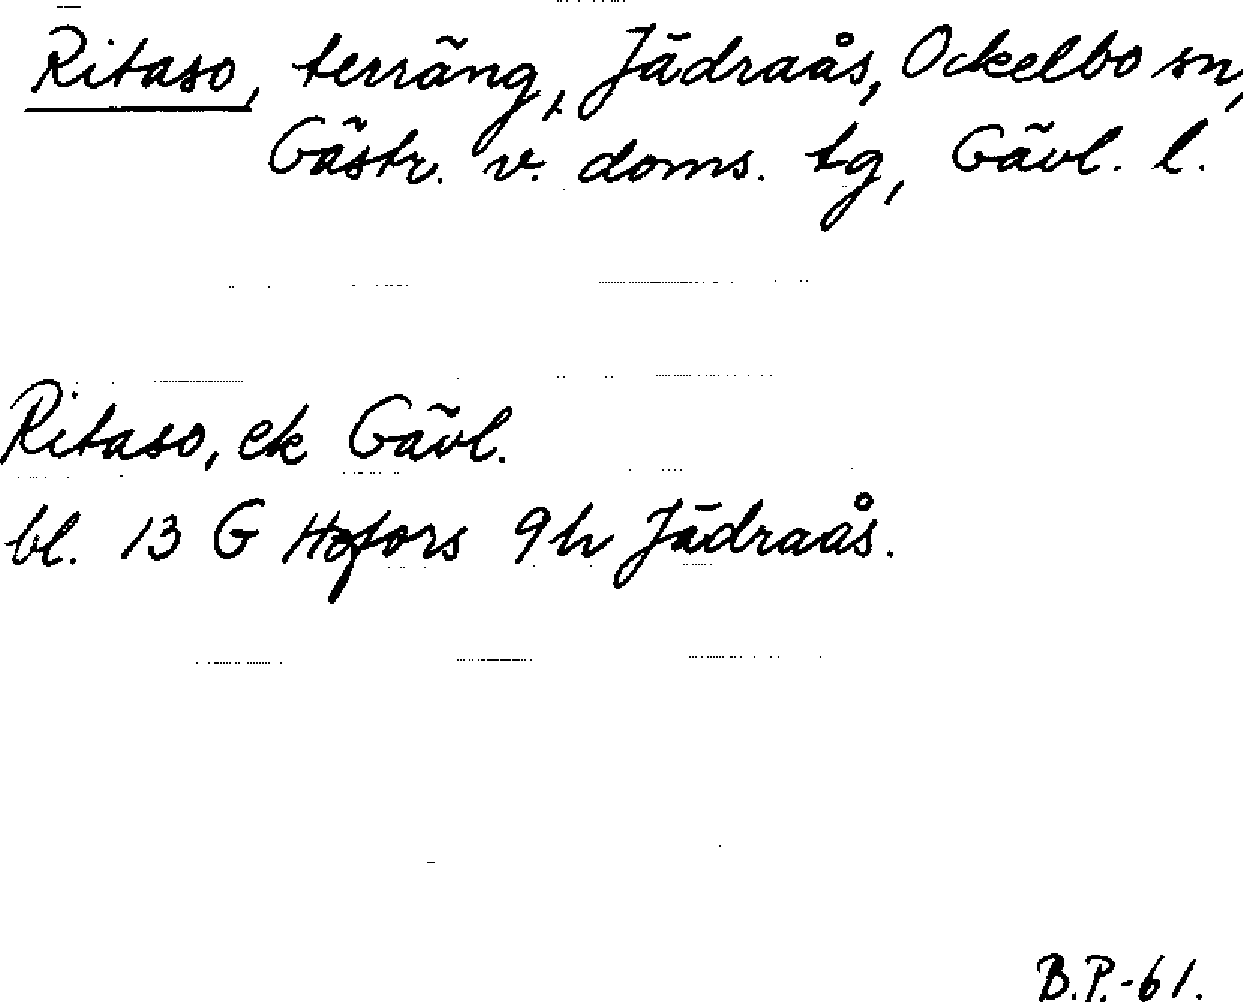 Ritaso, terräng, Jädraås, Ockelbo sn,
Gästr. v. doms. tg, Gävl. l.
Ritaso, ek Gävl.
bl. 13 G Hofors 9h Jädraås.
B.P.-61.